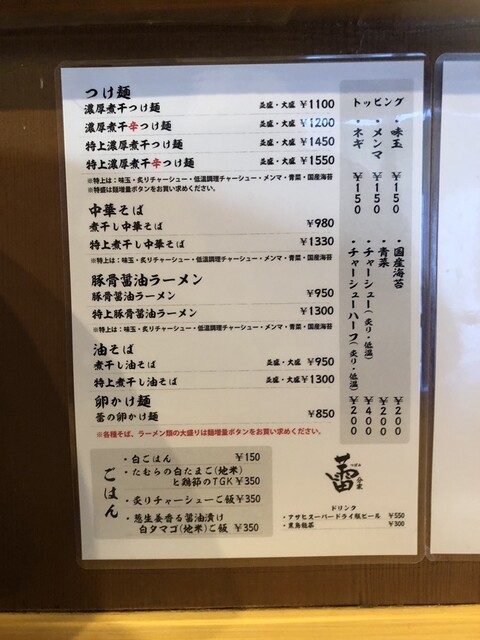 つけ麺
濃厚煮干つけ麺 並盛・大盛 ¥1100
濃厚煮干辛つけ麺 並盛・大盛 ¥1200
特上濃厚煮干つけ麺 並盛・大盛 ¥1450
特上濃厚煮干辛つけ麺 並盛・大盛 ¥1550
※特上は：味玉・炙りチャーシュー・低温調理チャーシュー・メンマ・青菜・国産海苔
※特盛は麺増量ボタンをお買い求めください。
中華そば
煮干し中華そば ¥980
特上煮干し中華そば ¥1330
※特上は：味玉・炙りチャーシュー・低温調理チャーシュー・メンマ・青菜・国産海苔
豚骨醤油ラーメン
豚骨醤油ラーメン ¥950
特上豚骨醤油ラーメン ¥1300
※特上は：味玉・炙りチャーシュー・低温調理チャーシュー・メンマ・青菜・国産海苔
油そば
煮干し油そば 並盛・大盛 ¥950
特上煮干し油そば 並盛・大盛 ¥1300
卵かけ麺
蕾の卵かけ麺 ¥850
※各種そば、ラーメン類の大盛りは麺増量ボタンをお買い求めください。
トッピング
・味玉 ¥150
・メンマ ¥150
・ネギ ¥150
・国産海苔 ¥200
・青菜 ¥200
・チャーシュー(炙り・低温) ¥400
・チャーシューハーフ(炙り・低温) ¥200
ごはん
・白ごはん ¥150
・たむらの白たまご(地米)
と鶏節のTGK ¥350
・炙りチャーシューご飯 ¥350
・葱生姜香る醤油漬け
白タマゴ(地米)ご飯 ¥350
蕾
つぼみ
分家
ドリンク
・アサヒスーパードライ瓶ビール ¥550
・黒烏龍茶 ¥300